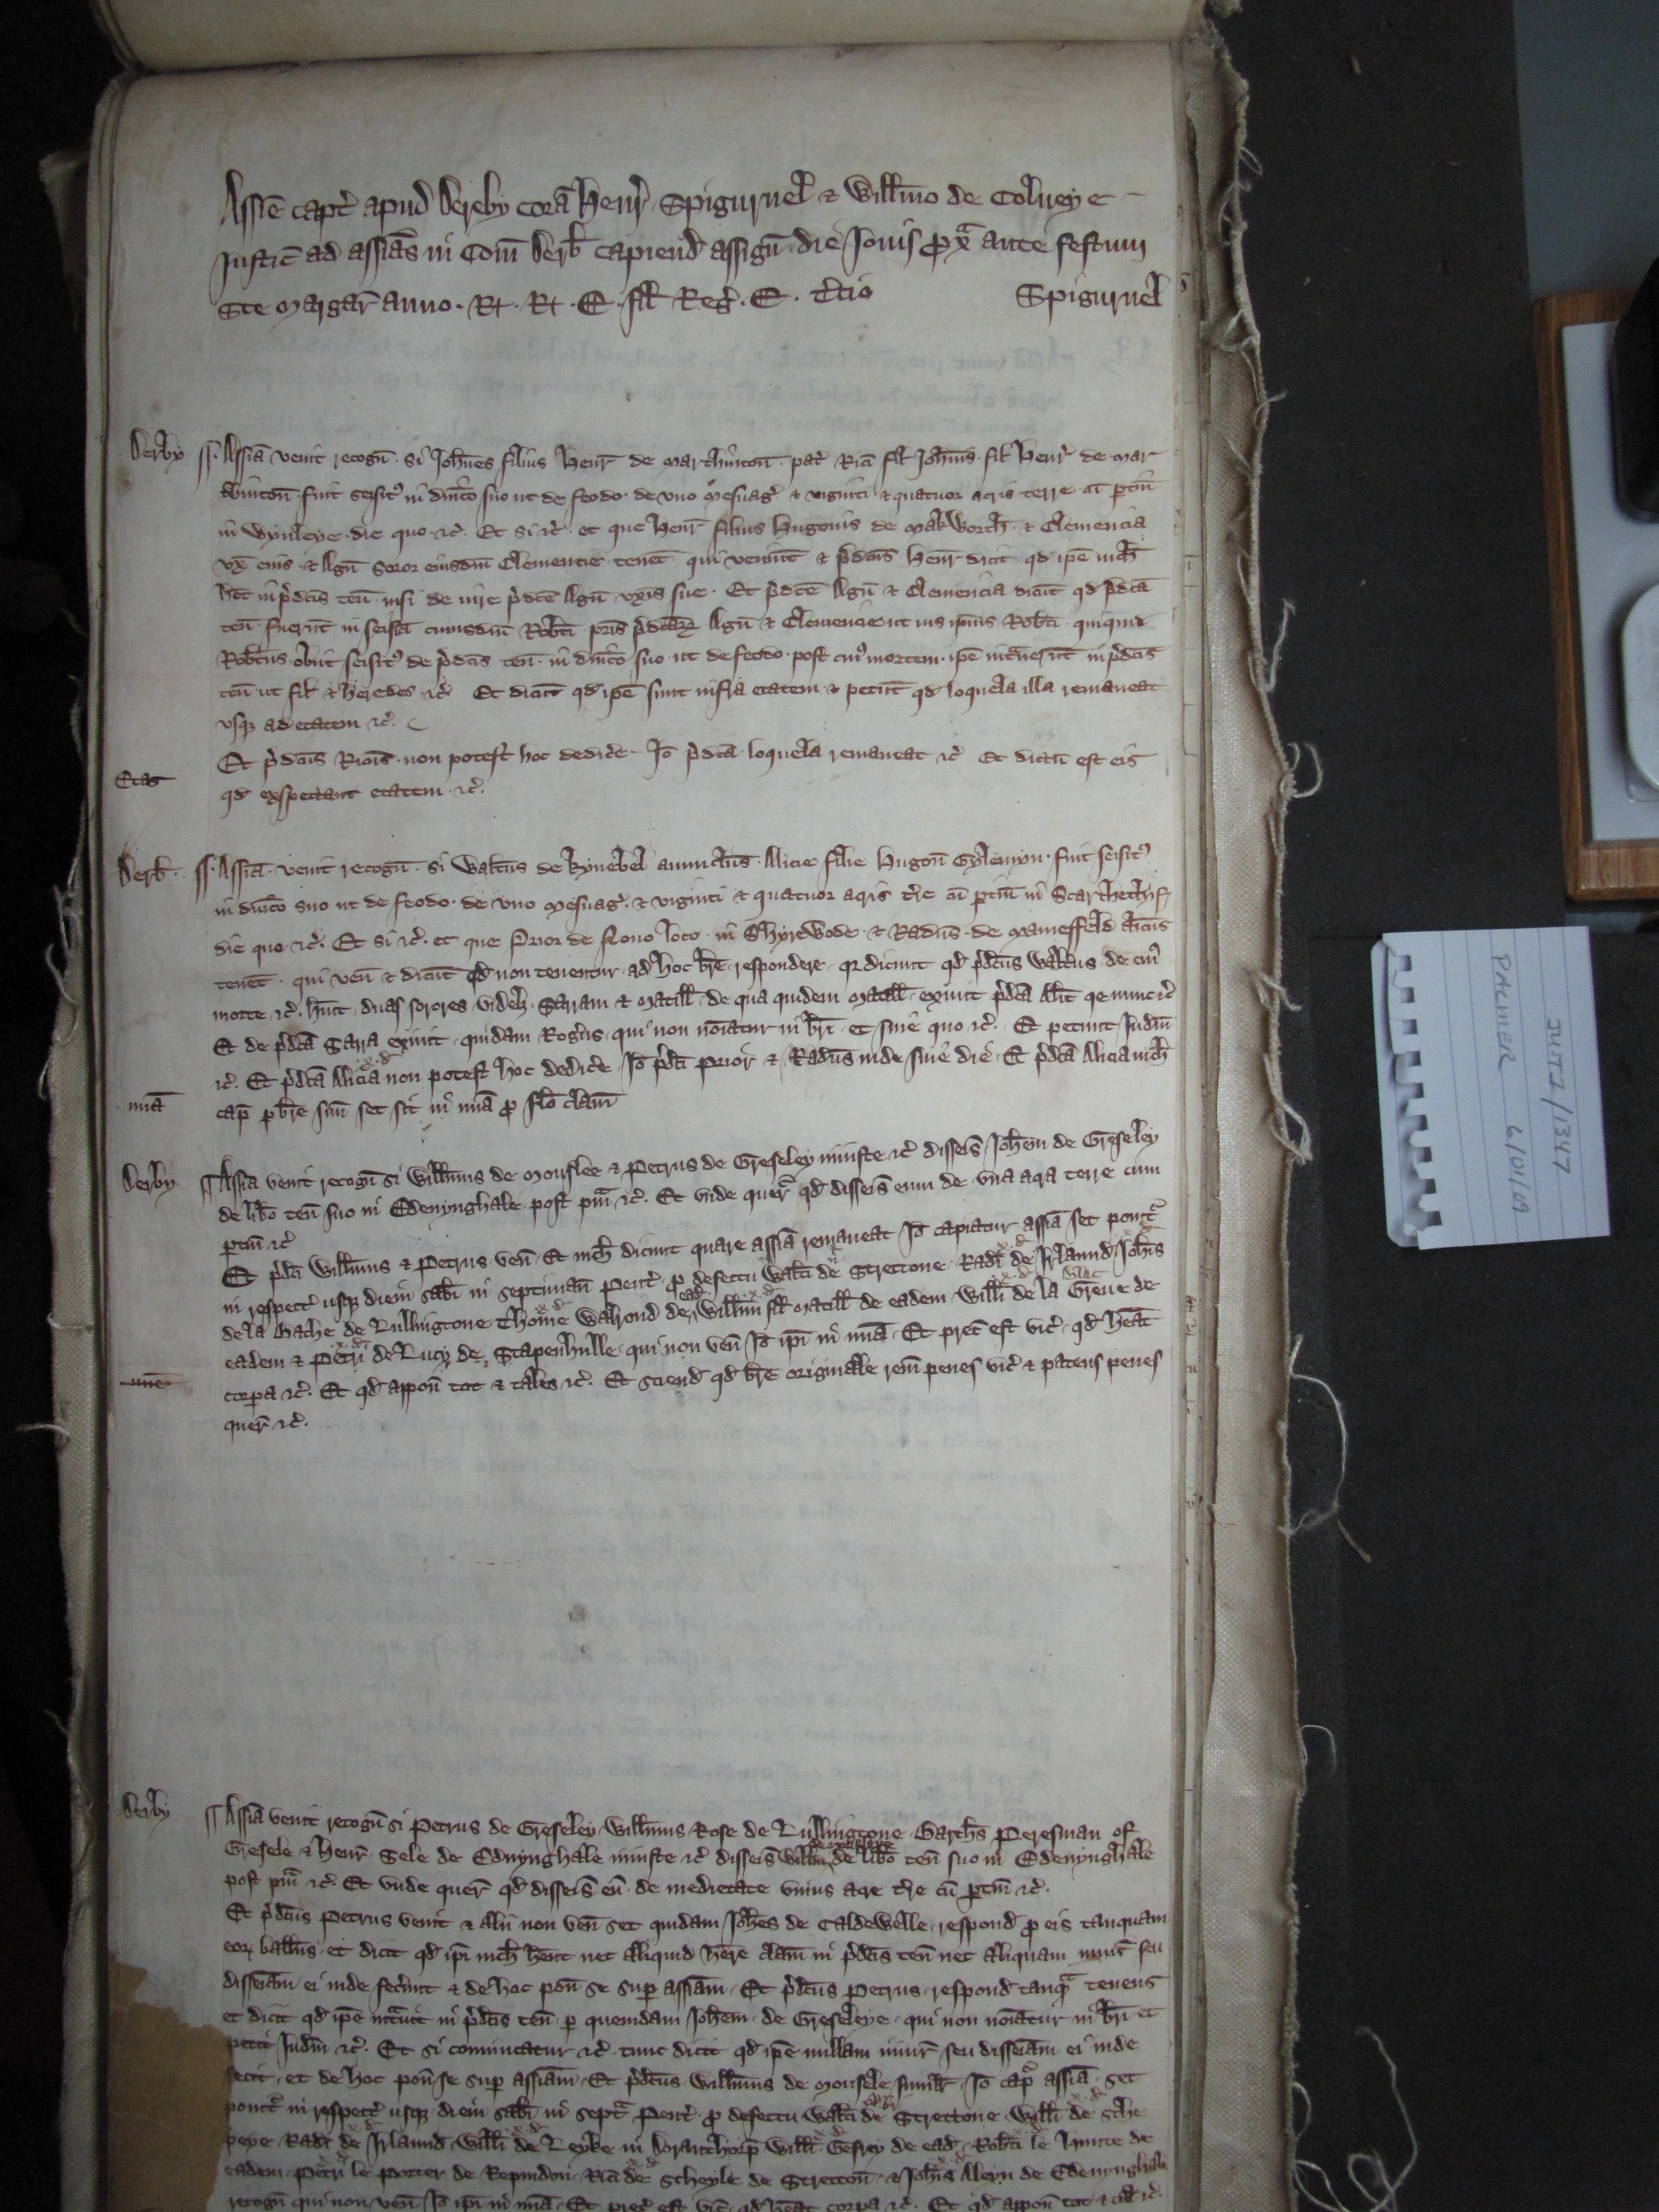 Assie capt apud Dereby cora Henr Spigurnel & Willmo de Colneye
Justic ad assias in Com Derb capiend assign die Jovis prox ante festum
Sce Margar anno R R E fil Reg E tcio Spigurnel
Derby Assia venit recogn si Johnes filius Henr de Marchinton pat Rici fil Johnis fil Henr de Mar
chinton fuit seisit in dnico suo ut de feodo de uno mesuag & viginti & quatuor acris terre cu ptin
in Wynleye die quo &c Et si &c et que Henr filius Hugonis de Makworth & Clemencia
ux eius & Agn soror eiusdm Clemencie tenet qui veniut & pdcus Henr dicit qd ipe nich
het in pdcis ten nisi de iure pdce Agn uxis sue Et pdce Agn & Clemencia dicut qd pdca
ten fuerut in seisia cuiusdm Robti pris pdcar Agn & Clemencie ut ius ipius Robti qui quid
Robtus obiit seisit de pdcis ten in dnico suo ut de feodo post cui mortem ipe intraverut in pdcis
ten ut fil & heredes &c Et dicut qd ipe sunt infra etatem & petut qd loquela illa remaneat
usq ad etatem &c
Et pdcus Ricus non potest hoc dedicere Io pdca loquela remaneat &c Et dictu est eis
Etas
qd exspectant etatem &c
Derb Assia venit recogn si Waltus de Kynebel avunclus Alicie filie Hugon Gylemyn fuit seisit
in dnico suo ut de feodo de uno mesuag & viginti & quatuor acris tre cu ptin in Scarthethlyf
die quo &c Et si &c et que Prior de Novo loco in Shyrewode & Radus de Mameffeld clicus
tenet qui ven & dicut qd non tenentur ad hoc bre respondere qr dicunt qd pdcus Waltus de cui
morte &c huit duas sorores videlz Sarram & Matill de qua quidem Matill exivit pdca Alic qe nunc &c
Et de pdca Sarra exivit quidam Rogus qui non noiatur in bri et sine quo &c Et petunt Judm
&c Et pdca Alicia non potest hoc dedicere Io pdci Prior & Radus inde sine die Et pdca Alicia nich
mia cap p bre suu set sit in mia pro flo clam
Derby Assia venit recogn si Willmus de Monslee & Petrus de Greseley iniuste &c disseis Johem de Greseley
de libo ten suo in Edenynghale post pma &c Et unde quer qd disseis eum de una acra terre cum
ptin &c
Et pdci Willmus & Petrus ven Et nich dicunt quare assia remaneat Io capiatur assia set ponit
in respect usq diem Sabi in septiman Pent pro defectu Walti de Strettone Radi de Irlaund Johis
de la Bache de Lullingtone Thome Walrond de ead Willmi fil Matill de eadem Willi de la Grene de
eadem & Petri de Lucy de Stapenhulle qui non ven Io ipi in mia Et prec est vic qd heat
mie corpa &c Et qd appon tot & tales &c Et sciend qd bre originale rem penes vic & patens penes
quer &c
Derby Assia venit recogn si Petrus de Greseley Willmus Rose de Lullingtone Barths Peresman of
Gresele & Henr Sele de Ednynghale iniuste &c disseis Willm de Monsleye de libo ten suo in Edenynghale
post pma &c Et unde quer qd disseis eu de medietate unius acre tre cu ptin &c
Et pdcus Petrus venit & alii non ven set quidam Johes de Caldewelle respond pro eis tanquam
eor ballius et dicit qd ipi nich hent nec aliquid here clam in pdcis ten nec aliquam iniur seu
disseiam ei inde fecunt & de hoc pon se sup assiam Et pdcus Petrus respond tanqa tenens
et dicit qd ipe intravit in pdcis ten p quemdam Johem de Greseleye qui non noiatur in bri et
petit Judm &c Et si convincatur &c tunc dicit qd ipe nullam iniur seu disseiam ei inde
fecit et de hoc pon se sup assiam Et pdcus Willmus de Monsele similr Io cap assia set
ponit in respect usq diem Sabi in septa Pent pro defectu Walti de Strettone Willi de Sche
peye Radi de Irlaund Willi de Leyke in Doranthorp Willi Gefrey de ead Robti le Hunte de
eadem Petri le Porter de Repindon Rici de Scheyle de Stretton & Johis Aleyn de Edenynghale
recogn qui non ven Io ipi in mia Et prec est vic qd heat corpa &c Et qd appon tot & tal &c
DUTZ/1347
PALMER 6/01/09